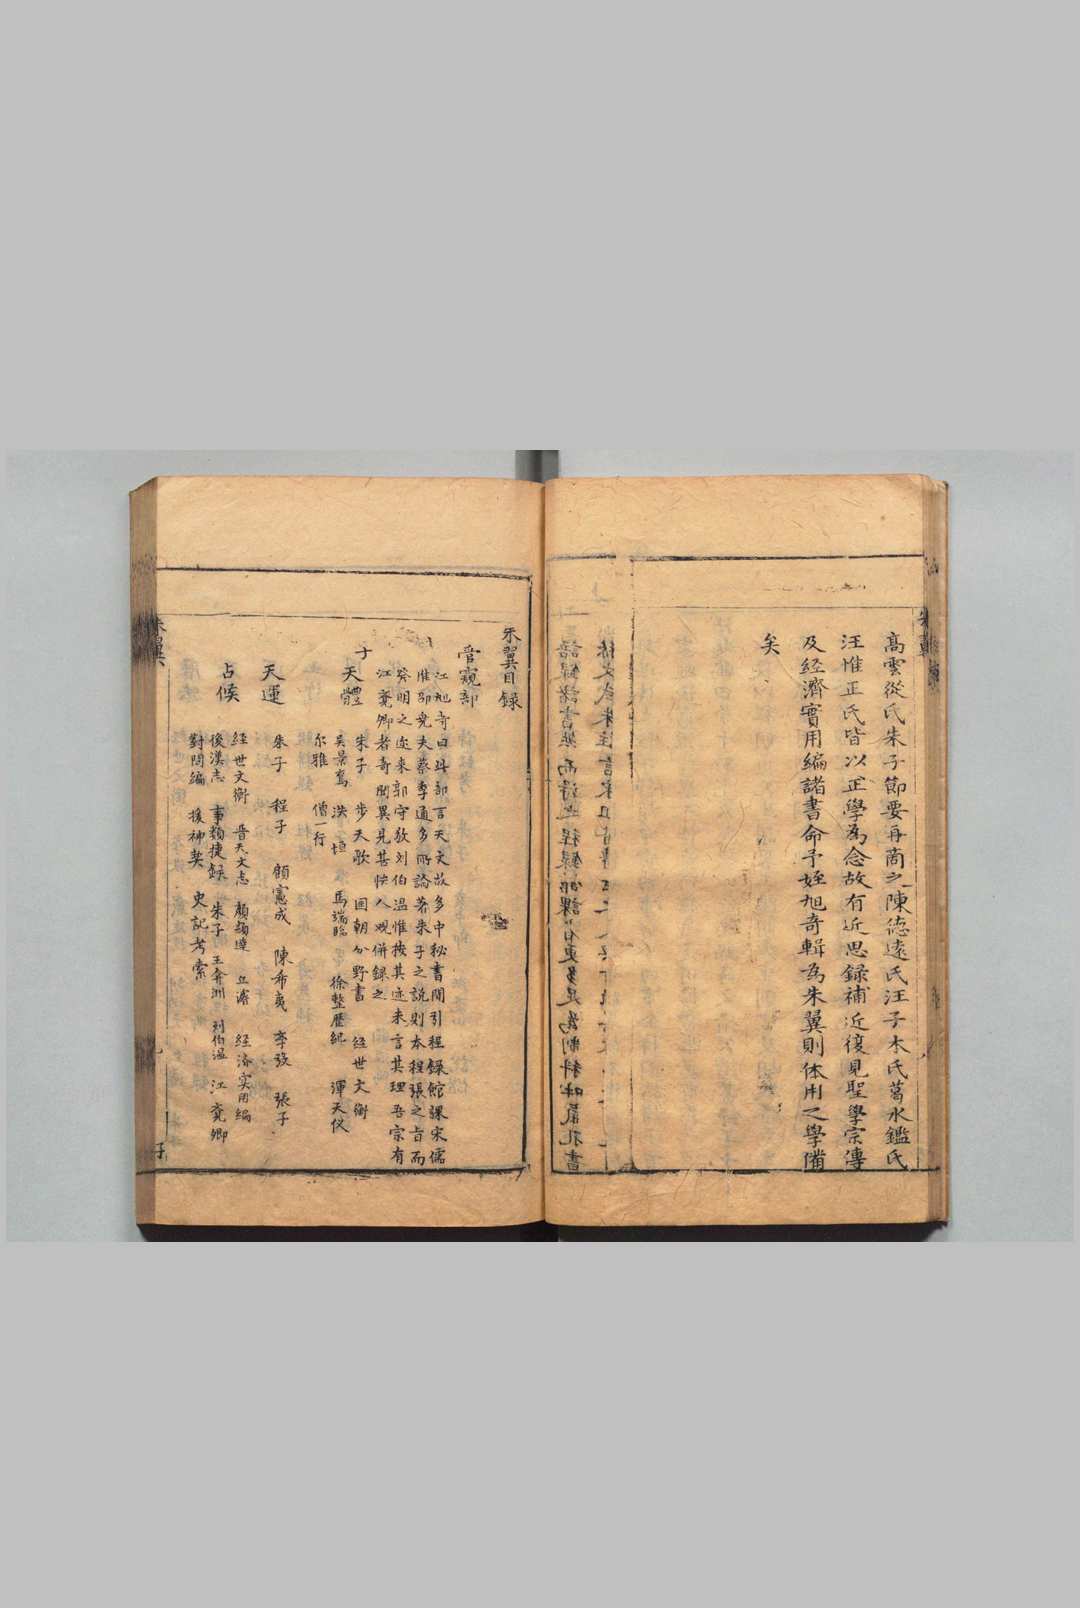 高雲從氏朱子節要再商之陳德遠氏汪子木氏葛水鑑氏
汪惟正氏皆以正學為念故有近思錄補近復見聖學宗傳
及經濟實用編諸書命予姪旭奇輯為朱翼則体用之學備
矣
朱翼目録
管窺部
江旭奇曰此部言天文故多中秘書間引程錄館課宋儒
惟邵堯夫蔡季通多所論著朱子之說則本程張之旨而
發明之迩来郭守敬刘伯温惟按其迹未言其理吾宗有
江堯卿者奇聞異見甚快人观併録之
天體
朱子 步天歌 国朝分野書 經世文衡
吴景鸞 洪垣 馬端臨 徐整歷紀 渾天仪
尔雅 僧一行
天運
朱子 程子 顧憲成 陳希夷 李 張子
占候
經世文衡 晋天文志 顏 丘濬 經済实用編
後漢志 事類捷録 朱子 王弇洲 刘伯温 江堯卿
對問編 援神契 史記考索
朱翼